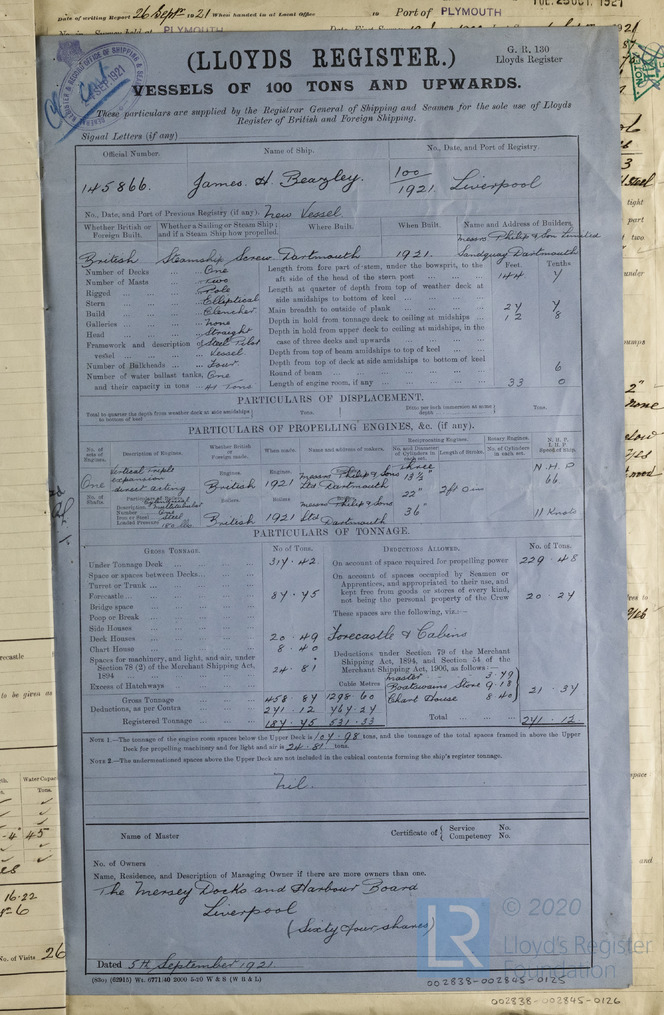 Date of writing Report 26 Septr 1921 When handed in at Local Office 19 Port of PLYMOUTH
TUE. 25 OCT. 1921
PLYMOUTH
(LLOYDS REGISTER.)
G. R. 130
Lloyds Register
VESSELS OF 100 TONS AND UPWARDS.
These particulars are supplied by the Registrar General of Shipping and Seamen for the sole use of Lloyds
Register of British and Foreign Shipping.
Signal Letters (if any)
Official Number. Name of Ship. No., Date, and Port of Registry.
145866. James. H. Beazley. 100/1921. Liverpool
No., Date, and Port of Previous Registry (if any). New Vessel.
Whether British or Foreign Built. Whether a Sailing or Steam Ship; and if a Steam Ship how propelled. Where Built. When Built. Name and Address of Builders.
Messrs Philip & Son Limited
British Steamship Screw Dartmouth 1921. Sandquay Dartmouth
Feet. Tenths
Number of Decks One
Number of Masts Two
Rigged Pole
Stern Elliptical
Build Clencher
Galleries None
Head Straight
Framework and description of vessel Steel Pilot Vessel
Number of Bulkheads Four
Number of water ballast tanks, One
and their capacity in tons 45 Tons
Length from fore part of stem, under the bowsprit, to the
aft side of the head of the stern post 144 7
Length at quarter of depth from top of weather deck at
side amidships to bottom of keel
Main breadth to outside of plank 27 7
Depth in hold from tonnage deck to ceiling at midships 12 8
Depth in hold from upper deck to ceiling at midships, in the
case of three decks and upwards
Depth from top of beam amidships to top of keel
Depth from top of deck at side amidships to bottom of keel
Round of beam 6
Length of engine room, if any 33 0
PARTICULARS OF DISPLACEMENT.
Total to quarter the depth from weather deck at side amidships to bottom of keel Tons. Ditto per inch immersion at same depth Tons.
PARTICULARS OF PROPELLING ENGINES, &c. (if any).
No. of sets of Engines. Description of Engines. Whether British or Foreign made. When made. Name and address of makers. Reciprocating Engines. Rotary Engines. N.H.P. I.H.P. Speed of Ship.
No. and Diameter of Cylinders in each set. Length of Stroke. No. of Cylinders in each set.
One Vertical Triple expansion direct acting Engines. British Engines. 1921 Messrs Philip & Sons Ltd Dartmouth Three 13½" 22" 36" 2ft 0in N.H.P 66
No. of Shafts. Particulars of Boilers. Boilers. Boilers.
Description Cylindrical Multitubular
Number One
Iron or Steel Steel
Loaded Pressure 180 lbs
British 1921 Messrs Philip & Sons Ltd Dartmouth 11 Knots
PARTICULARS OF TONNAGE.
GROSS TONNAGE. No. of Tons. DEDUCTIONS ALLOWED. No. of Tons.
Under Tonnage Deck 317.42
Space or spaces between Decks
Turret or Trunk
Forecastle 87.75
Bridge space
Poop or Break
Side Houses
Deck Houses 20.49
Chart House 8.40
Spaces for machinery, and light, and air, under
Section 78 (2) of the Merchant Shipping Act,
1894 24.81
Excess of Hatchways
Cubic Metres
Gross Tonnage 458.87 1298.60
Deductions, as per Contra 271.12 767.27
Registered Tonnage 187.75 531.33
On account of space required for propelling power 229.48
On account of spaces occupied by Seamen or
Apprentices, and appropriated to their use, and
kept free from goods or stores of every kind,
not being the personal property of the Crew 20.27
These spaces are the following, viz.:—
Forecastle & Cabins
Deductions under Section 79 of the Merchant
Shipping Act, 1894, and Section 54 of the
Merchant Shipping Act, 1906, as follows:—
Master 3.79
Boatswains Store 9.18
Chart House 8.40 21.37
Total 271.12
NOTE 1.—The tonnage of the engine room spaces below the Upper Deck is 107.98 tons, and the tonnage of the total spaces framed in above the Upper
Deck for propelling machinery and for light and air is 24.81 tons.
NOTE 2.—The undermentioned spaces above the Upper Deck are not included in the cubical contents forming the ship's register tonnage.
Nil.
Name of Master Certificate of { Service No.
Competency No.
No. of Owners
Name, Residence, and Description of Managing Owner if there are more owners than one.
The Mersey Docks and Harbour Board
Liverpool
(Sixty four shares)
Dated 5th September 1921.
(83o) (62915) Wt. 0771/40 2000 5-20 W & S (W B & L)
LR © 2020
Lloyd's Register
Foundation
002838-002845-0125
002838-002845-0126
Water Capac
Tons.
45
16.22
No. of Visits 26
to be given as